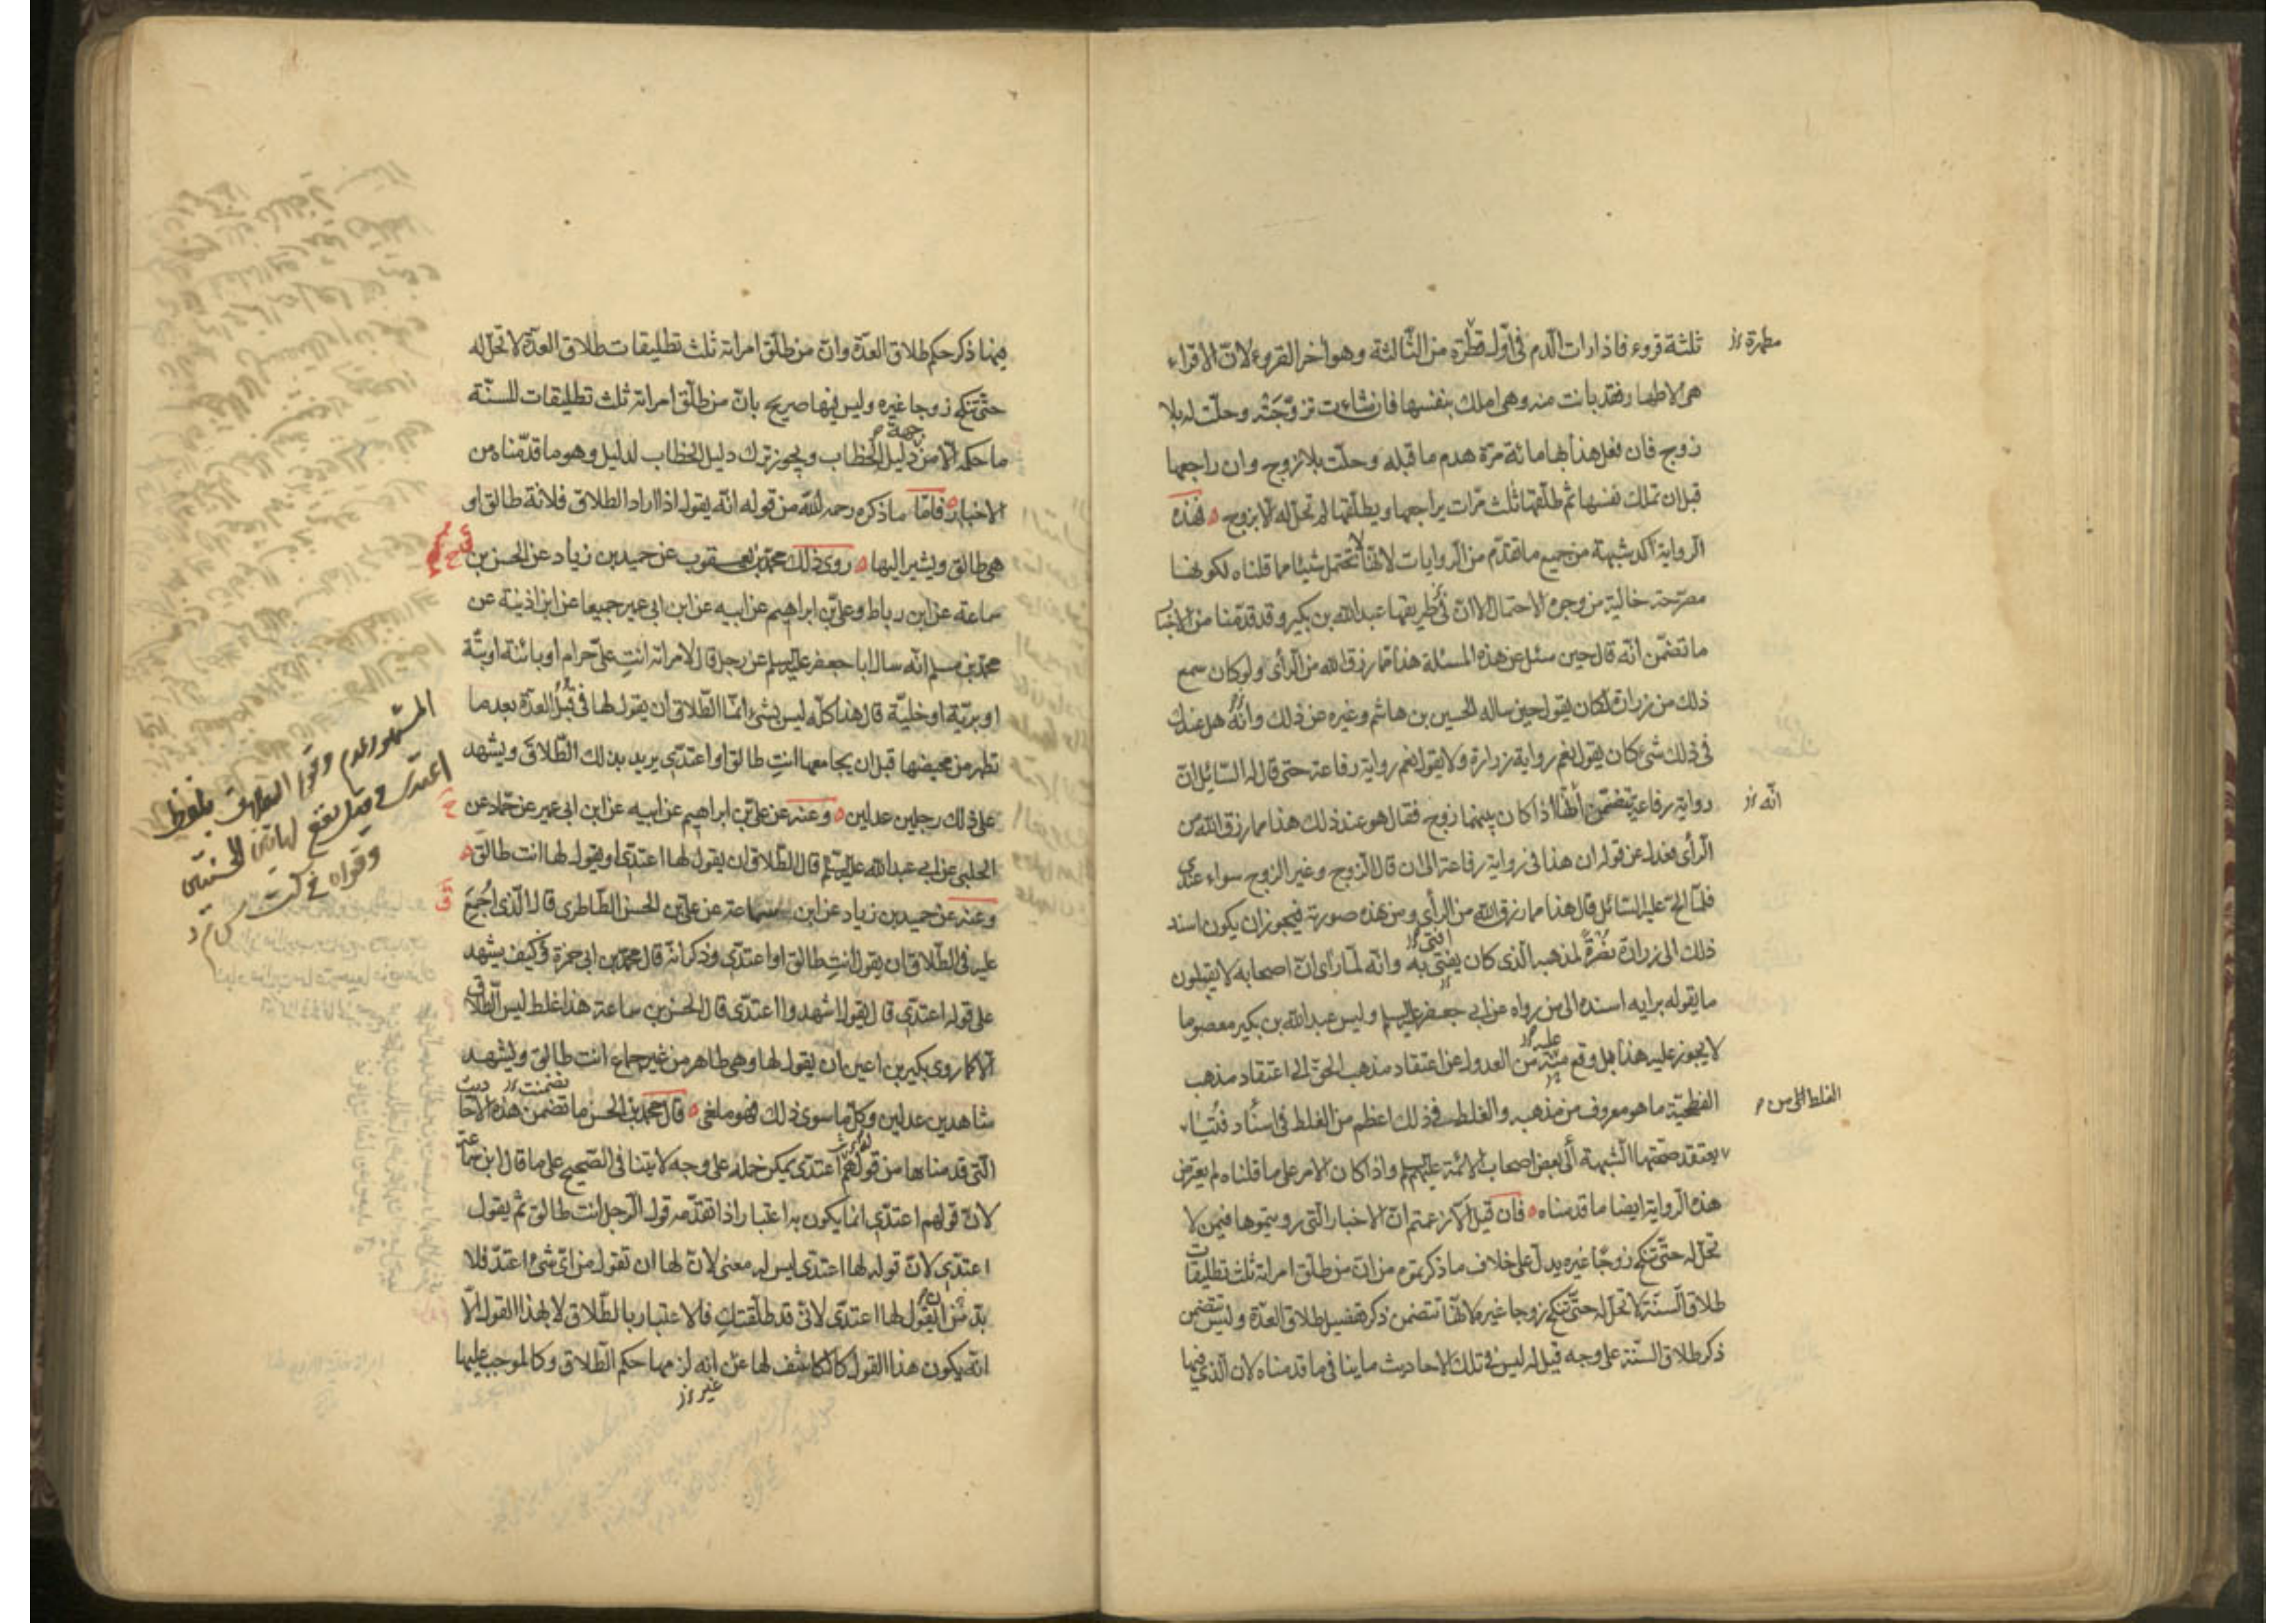 ثلثة قروء فاذا رات الدم في اول قطرة من الثالثة وهو اخر القروء لان الاقراء
هي الاطهار فقد بانت منه وهي املك بنفسها فان شاءت تزوجته وحلت له بلا
زوج فان فعل هذا بها مائة مرة هدم ما قبله وحلت بلا زوج وان راجعها
قبل ان تملك نفسها ثم طلقها ثلث مرات يراجعها ويطلقها لم تحل له الا بزوج فهذه
الرواية اكد شبهة من جميع ما تقدم من الروايات لانها لا تحتمل شيئا مما قلناه لكونها
مصرحة خالية من وجوه الاحتمال الا ان في طريقها عبد الله بن بكير وقد قدمنا من الاخبار
ما تضمن انه قال حين سئل عن هذه المسئلة هذا مما رزق الله من الرأى ولو كان سمع
ذلك من زرارة لكان يقول حين ساله الحسين بن هاشم وغيره عن ذلك وانه هل عندك
في ذلك شئ كان يقول نعم رواية زرارة ولا يقول نعم رواية رفاعة حتى قال له السائل ان
رواية رفاعة تتضمن انها اذا كان بينهما زوج فقال هو عند ذلك هذا مما رزق الله من
الرأى فعدل عن قوله ان هذا في رواية رفاعة الى ان قال الزوج وغير الزوج سواء عندي
فلما الح عليه السائل قال هذا مما رزق الله من الرأى ومن هذه صورته فيجوز ان يكون اسند
ذلك الى زرارة نصرة لمذهبه الذى كان يفتى به وانه لما راى ان اصحابه لا يقبلون
ما يقوله برايه اسنده الى من رواه عن ابي جعفر عليه السلم وليس عبد الله بن بكير معصوما
لا يجوز عليه هذا بل وقع منه من العدول عن اعتقاد مذهب الحق الى اعتقاد مذهب
الفطحية ما هو معروف من مذهبه والغلط في ذلك اعظم من الغلط في اسناد فتيا
يعتقد صحتها الشبهة الى بعض اصحاب الائمة عليهم السلم واذا كان الامر على ما قلناه لم يعترض
هذه الرواية ايضا ما قدمناه فان قيل الا زعمتم ان الاخبار التى رويتموها فيمن لا
تحل له حتى تنكح زوجا غيره يدل على خلاف ما ذكرتموه من ان من طلق امراته ثلث تطليقات
طلاق السنة لا تحل له حتى تنكح زوجا غيره لانها تتضمن ذكر تفصيل طلاق العدة وليس تتضمن
ذكر طلاق السنة على وجه قيل له ليس في تلك الاحاديث ما ينافي ما قدمناه لان الذي فيها
مطهرة
انه
الغلط الى من
فيها ذكر حكم طلاق العدة وان من طلق امراته ثلث تطليقات طلاق العدة لا تحل له
حتى تنكح زوجا غيره وليس فيها صريح بان من طلق امراته ثلث تطليقات للسنة
ما حكمه الا من جهة دليل الخطاب ويجوز ترك دليل الخطاب لدليل وهو ما قدمناه من
الاخبار فاما ما ذكره رحمه الله من قوله انه يقول اذا اراد الطلاق فلانة طالق او
هي طالق ويشير اليها روى ذلك محمد بن يعقوب عن حميد بن زياد عن الحسن بن
سماعة عن ابن رباط وعلى بن ابراهيم عن ابيه عن ابن ابي عمير جميعا عن ابن اذينة عن
محمد بن مسلم انه سال ابا جعفر عليه السلم عن رجل قال لامراته انتِ على حرام او بائنة او بتة
او برية او خلية قال هذا كله ليس بشئ انما الطلاق ان يقول لها في قبل العدة بعد ما
تطهر من محيضها قبل ان يجامعها انتِ طالق او اعتدى يريد بذلك الطلاق ويشهد
على ذلك رجلين عدلين وعنه عن على بن ابراهيم عن ابيه عن ابن ابي عمير عن حماد عن
الحلبي عن ابي عبد الله عليه السلم قال الطلاق ان يقول لها اعتدى او يقول لها انت طالق
وعنه عن حميد بن زياد عن ابن سماعة عن على بن الحسن الطاطرى قال الذى اجمع
عليه في الطلاق ان يقول انتِ طالق او اعتدى وذكر انه قال محمد بن ابي حمزة وكيف يشهد
على قوله اعتدى قال يقول اشهدوا اعتدى قال الحسن بن سماعة هذا غلط ليس الطلاق
الا كما روى بكير بن اعين ان يقول لها وهى طاهر من غير جماع انت طالق ويشهد
شاهدين عدلين وكل ما سوى ذلك فهو ملغى قال محمد بن الحسن ما تضمن هذه الاحاديث
التى قدمناها من قولهم اعتدى يمكن حمله على وجه لا ينافى الصحيح على ما قال ابن سماعة
لان قولهم اعتدى انما يكون به اعتبار اذا تقدمه قول الرجل انت طالق ثم يقول
اعتدى لان قوله لها اعتدى ليس له معنى لان لها ان تقول من اى شئ اعتد فلا
بد من ان يقول لها اعتدى لانى قد طلقتكِ فالاعتبار بالطلاق لا بهذا القول الا
انه يكون هذا القول كالكاشف لها عن انه لزمها حكم الطلاق وكالموجب عليها
المشهور عدم وقوع الطلاق بلفظ
اعتدى